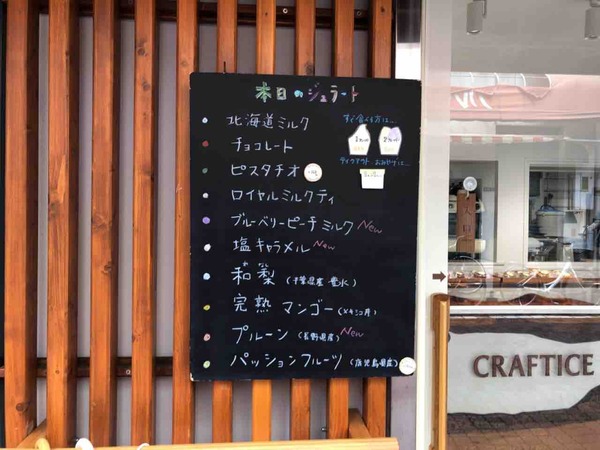 本日のジェラート
北海道ミルク
チョコレート
ピスタチオ
ロイヤルミルクティ
ブルーベリーピーチミルク New
塩キャラメル New
和梨 (千葉県産 豊水)
完熟 マンゴー (メキコ産)
プルーン (長野県産) New
パッションフルーツ (鹿児島県産)
すぐ食べる方は…
テイクアウト、おみやげは…
CRAFTICE